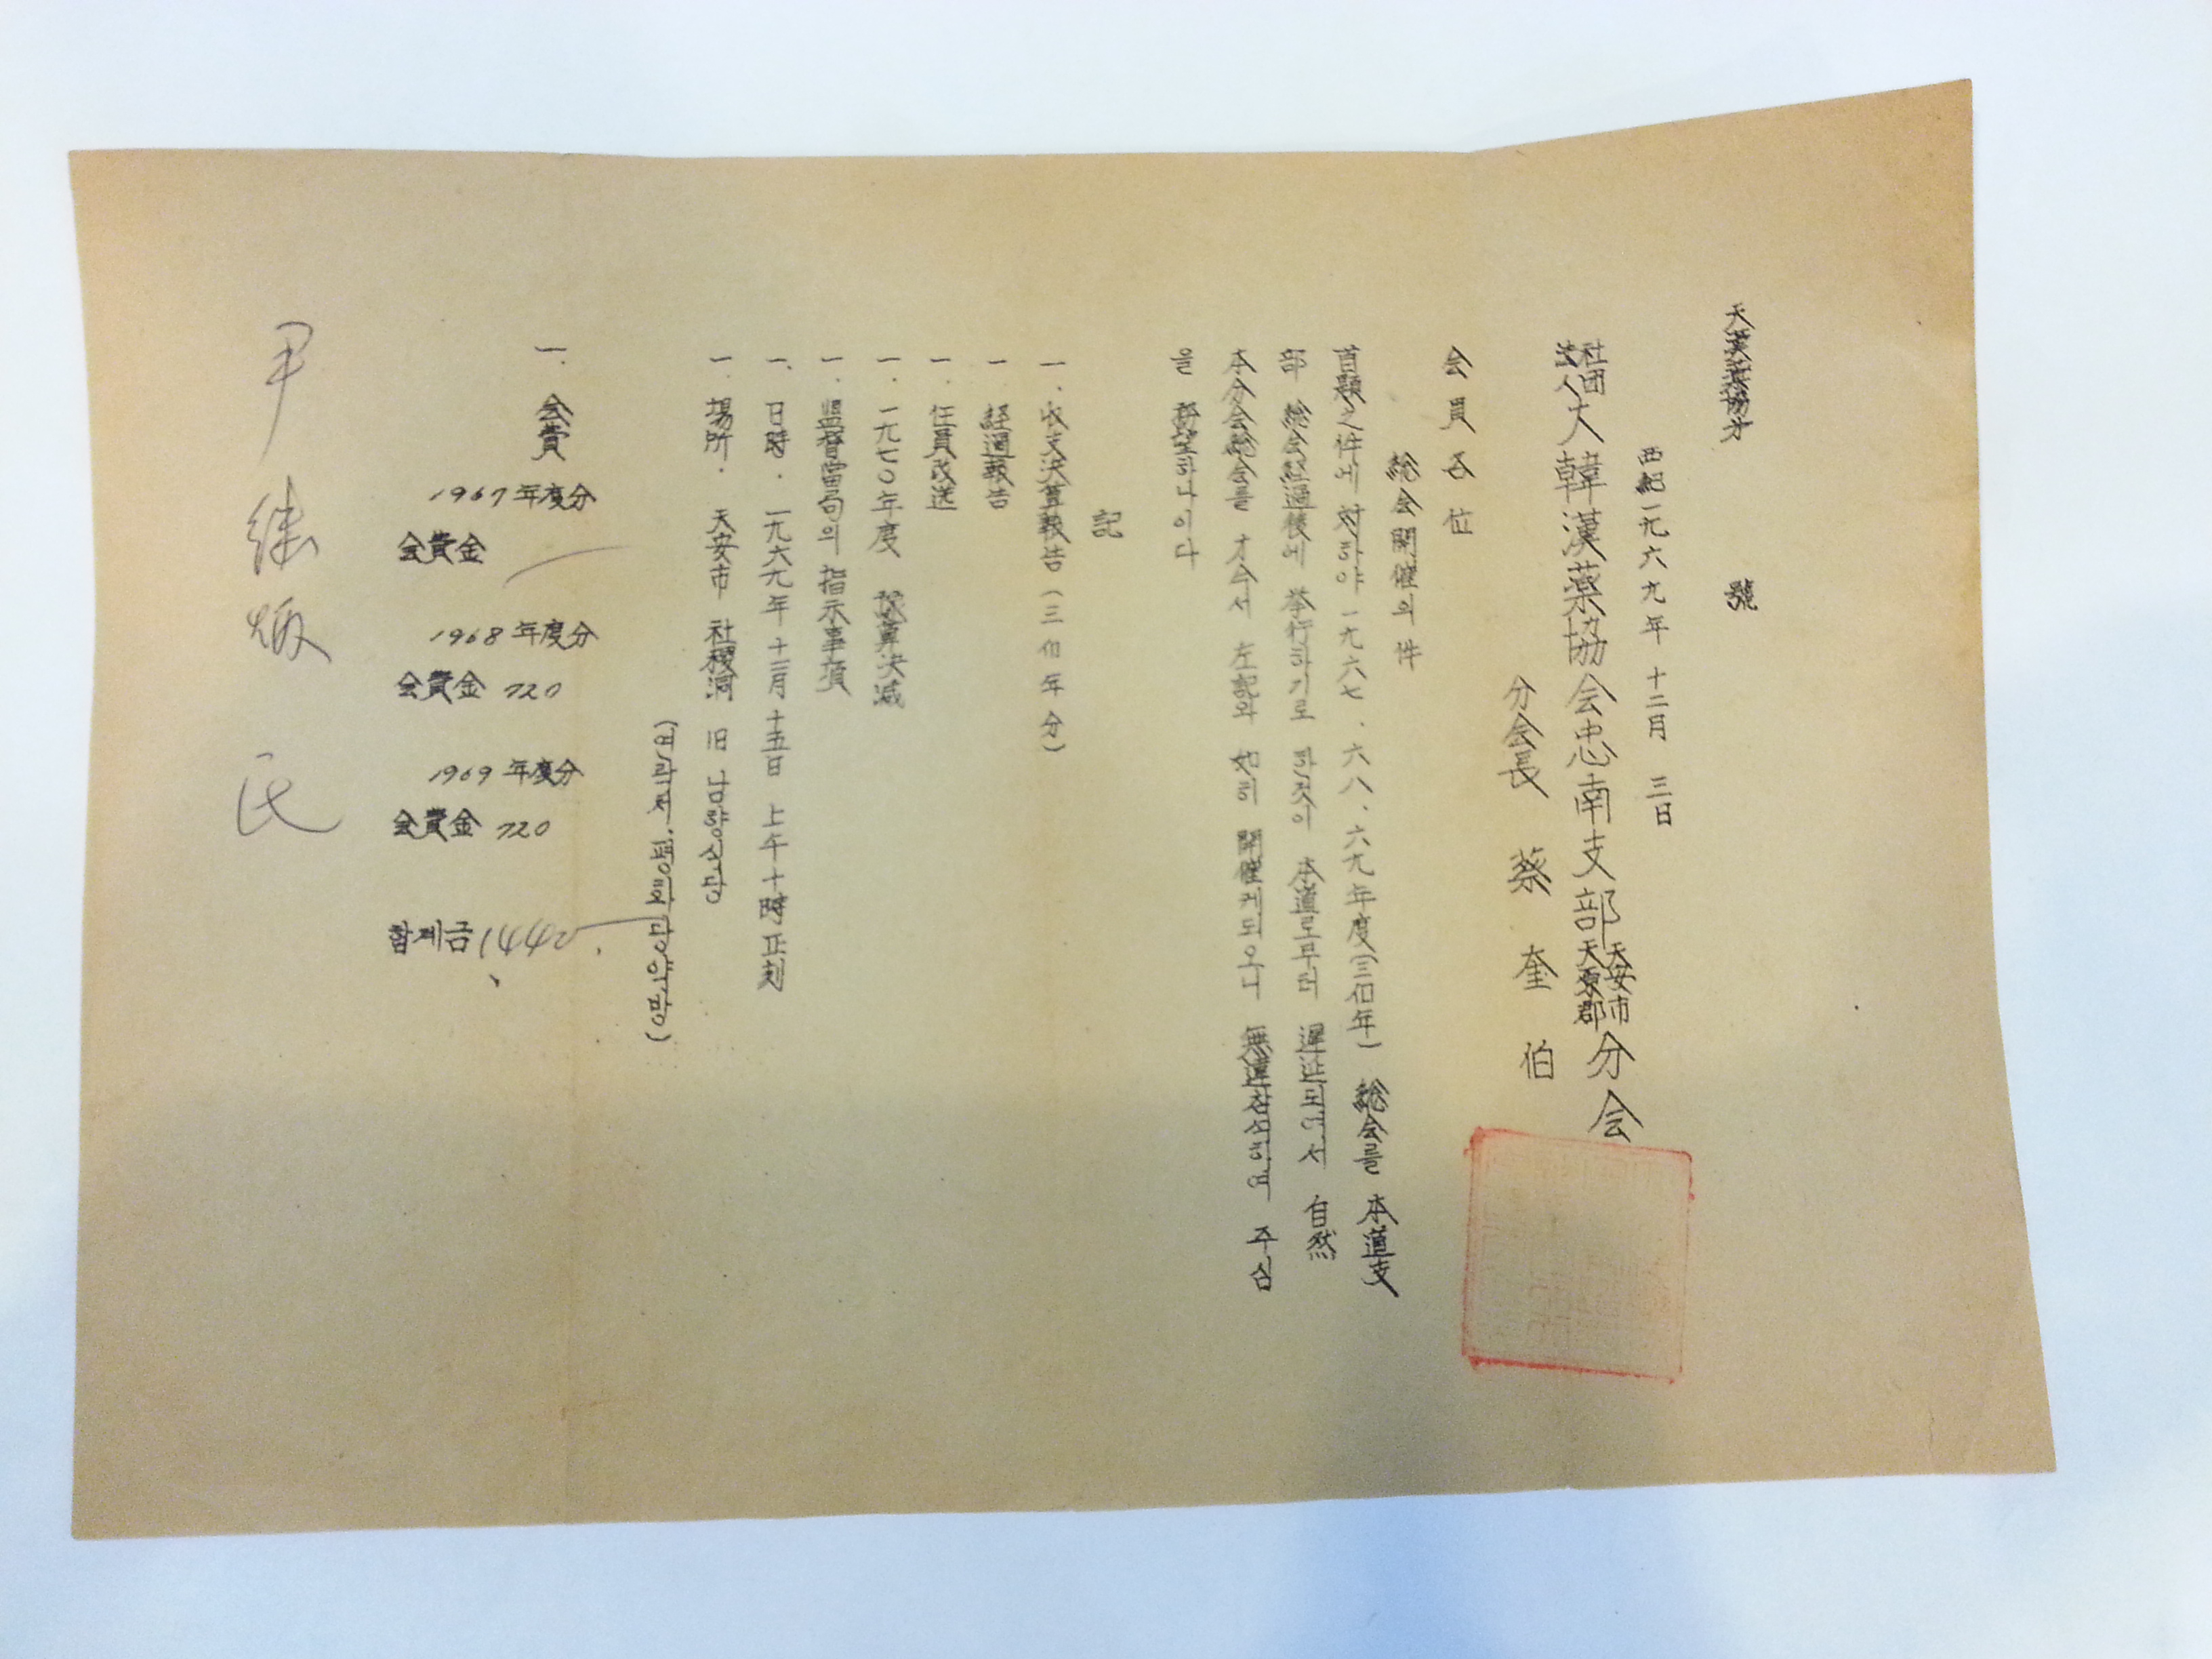 天漢薬協才 號
西紀一九六九年 十二月 三日
社団法人大韓漢薬協会忠南支部天安市天原郡分会
分会長 蔡 奎 伯
会員各位
総会開催의 件
首題之件에 対하야 一九六七、六八、六九年度(三個年) 総会를 本道支
部 総会経過後에 挙行하기로 한것이 本道로부터 遅延되여서 自然
本分会総会를 才今서 左記와 如히 開催케되오니 無違참석하여 주심
을 希望하나이다
記
一. 收支決算報告(三個年分)
一 経過報告
一 任員改送
一. 一九七○年度 予算決議
一. 監督當局의 指示事項
一. 日時. 一九六九年 十二月 十五日 上午十時正刻
一. 場所. 天安市 社稷洞 旧 남향식당
(연락처. 평화당약방)
一. 会費
1967年度分
会費金
1968年度分
会費金 720
1969年度分
会費金 720
합계금 1440
尹 炳 氏